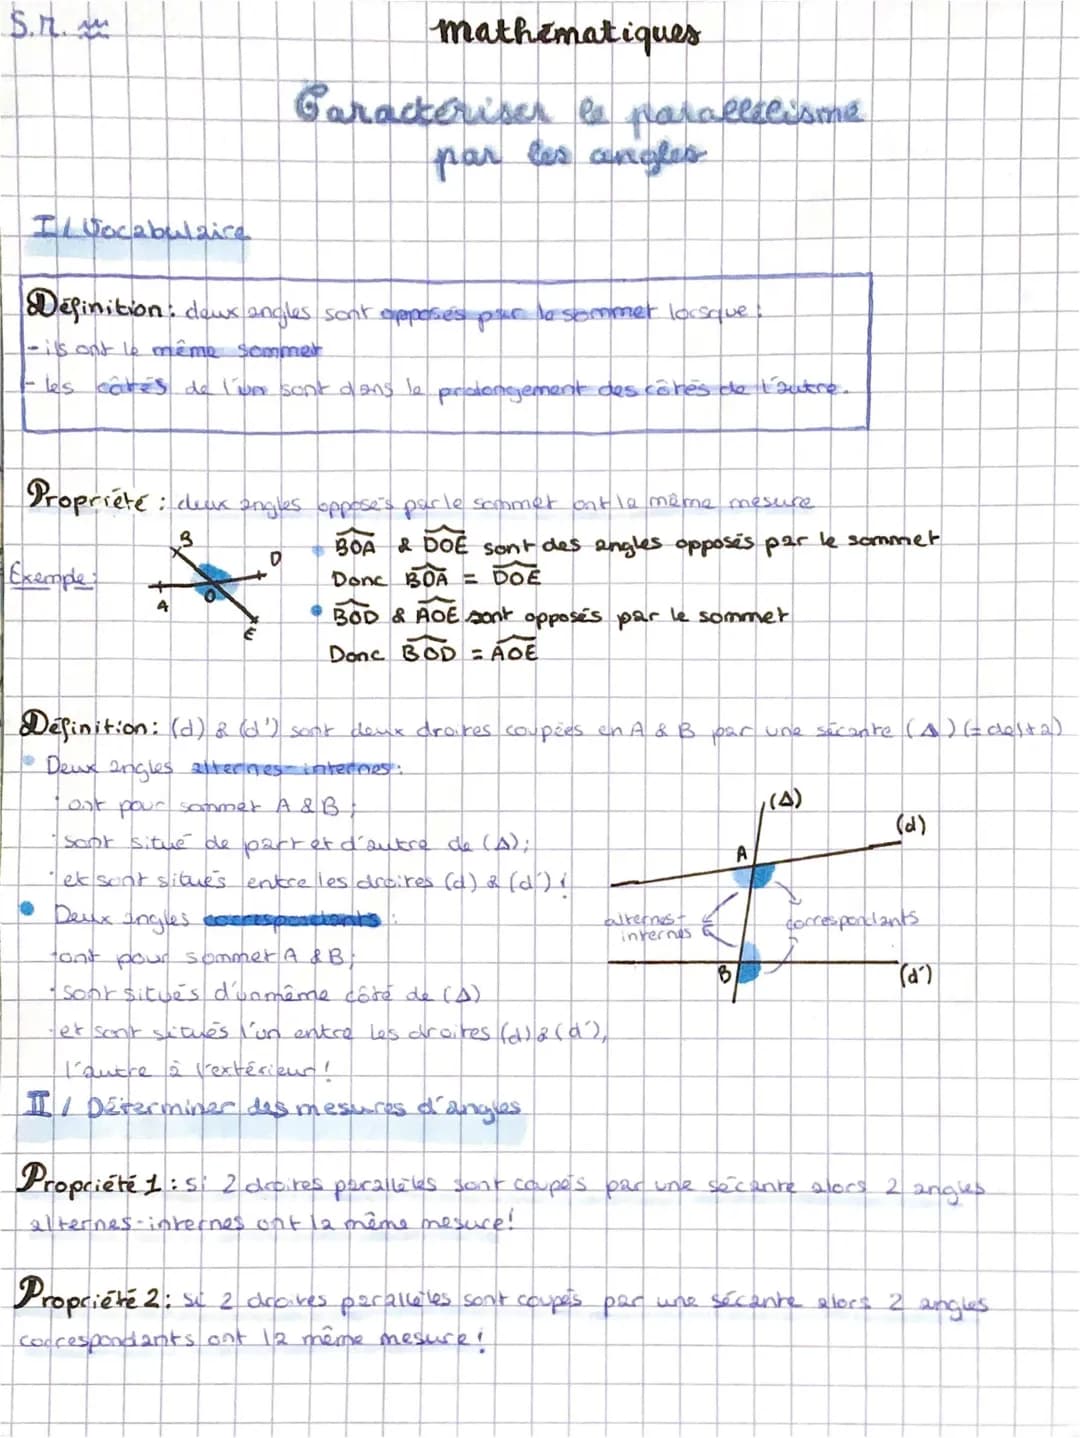 S.N.
mathématiques
Caractériser le parallélisme
par les angles
I/ Vocabulaire
Définition: deux angles sont opposés par le sommet lorsque:
- ils ont le même sommet
- les côtés de l'un sont dans le prolongement des côtés de l'autre.
Propriété : deux angles opposés par le sommet ont la même mesure
Exemple:
B
D
O
A
E
• BOA & DOE sont des angles opposés par le sommet
Donc BOA = DOE
• BOD & AOE sont opposés par le sommet
Donc BOD = AOE
Définition: (d) & (d') sont deux droites coupées en A & B par une sécante (Δ) (= delta)
• Deux angles alternes-internes:
ont pour sommet A & B;
sont situé de part et d'autre de (Δ);
et sont situés entre les droites (d) & (d')!
• Deux angles correspondants:
ont pour sommet A & B;
sont situés d'un même côté de (Δ)
et sont situés l'un entre les droites (d) & (d'),
l'autre à l'extérieur!
(Δ)
(d)
A
alternes-
internes
correspondants
B
(d')
II/ Déterminer des mesures d'angles
Propriété 1 : si 2 droites parallèles sont coupés par une sécante alors 2 angles
alternes-internes ont la même mesure!
Propriété 2: si 2 droites parallèles sont coupés par une sécante alors 2 angles
correspondants ont la même mesure!